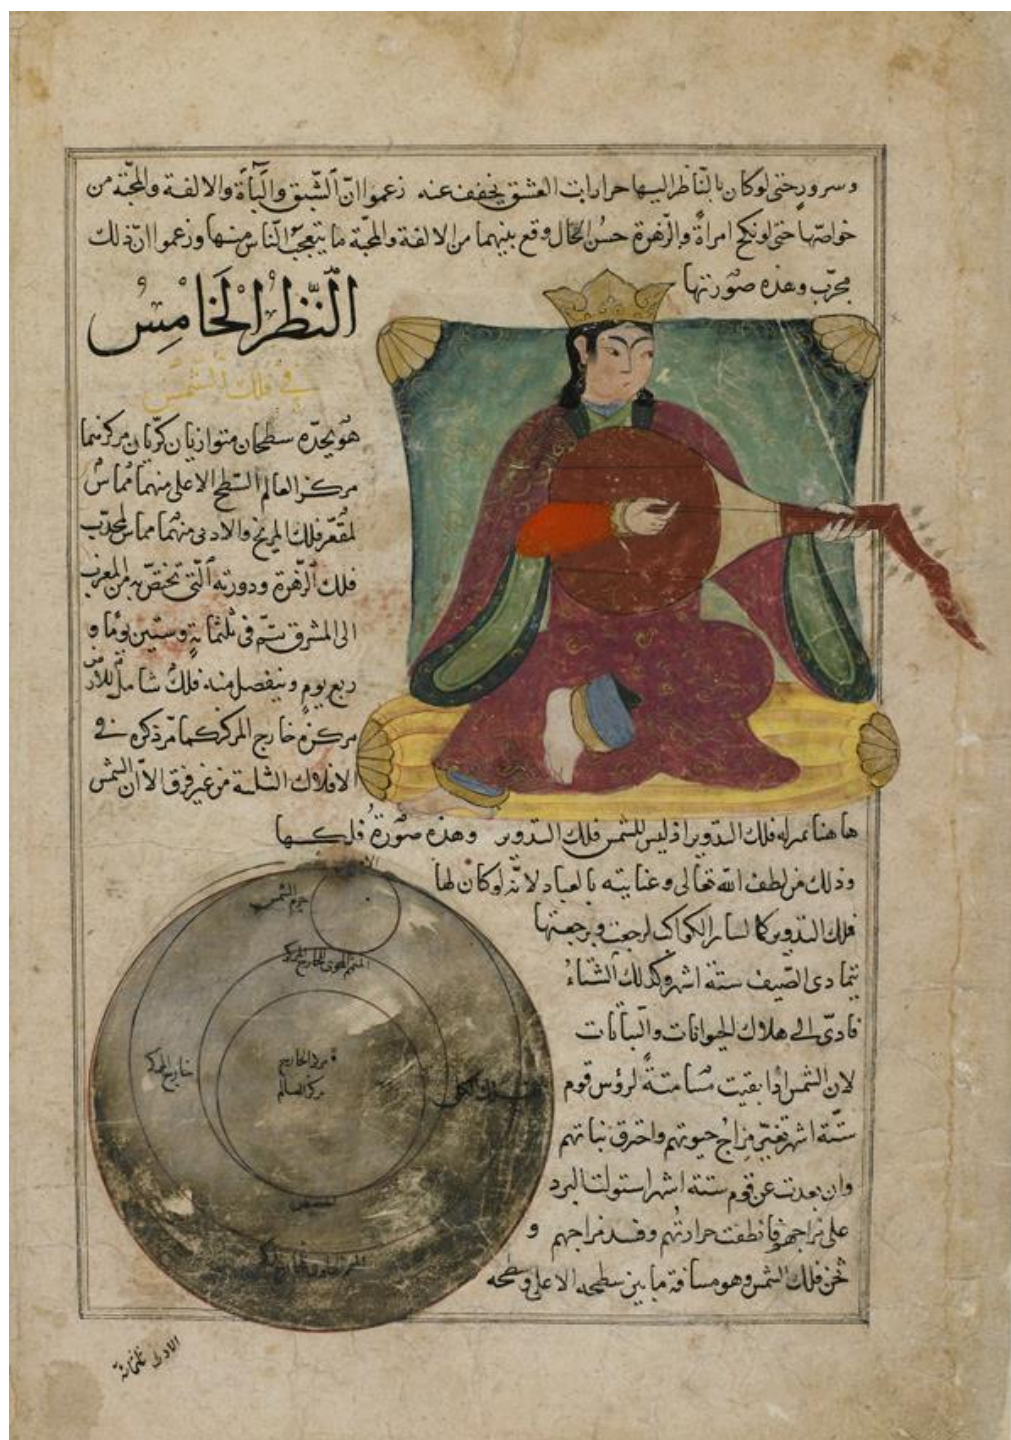 وسرور حتى لو كان بالناظر اليها حرارات العشق يخفف عنه زعموا انّ الشّبق والبأة والالفة والمحبّة من
خواصّها حتى لو نكح امراة والزّهرة حسن الحال وقع بينهما من الالفة والمحبّة ما يتعجّب النّاس منها وزعموا انّ ذلك
مجرّب وهذه صورتها
النّظر الخامس
في فلك الشمس
هو يحدّه سطحان متوازيان كرّيان مركزهما
مركز العالم السّطح الاعلى منهما مماسّ
لمقعّر فلك المريخ والادنى منهما مماس لمحدّب
فلك الزّهرة ودورته الّتي تختصّ به من المغرب
الى المشرق تتمّ في ثلثماية وستين يوما و
ربع يوم وينفصل منه فلك شامل للارض
مركزه خارج المركز كما مرّ ذكره في
الافلاك الثلثة من غير فرق الاّ ان الشمس
هاهنا بمنزلة فلك التدوير اذ ليس للشمس فلك التدوير وهذه صورة فلكها
وذلك من لطف الله تعالى وعنايته بالعباد لانّه لو كان لها
فلك التدوير كما لساير الكواكب لرجعت وبرجعتها
يتمادى الصّيف ستة اشهر وكذلك الشتاء
فادّى الى هلاك الحيوانات والنباتات
لان الشمس اذا بقيت مسامتة لرؤس قوم
ستّة اشهر تغيّر مزاج حيوتهم واحترق نباتهم
وان بعدت عن قوم ستة اشهر استولت البرد
على مزاجهم فانطفت حرارتهم وفسد مزاجهم و
ثخن فلك الشمس وهو مسافة ما بين سطحه الاعلى وسطحه
جرم الشمس
المتمم الحوى الخارج المركز
خارج المركز
مركز الخارج
مركز العالم
الادنى ثلثماية